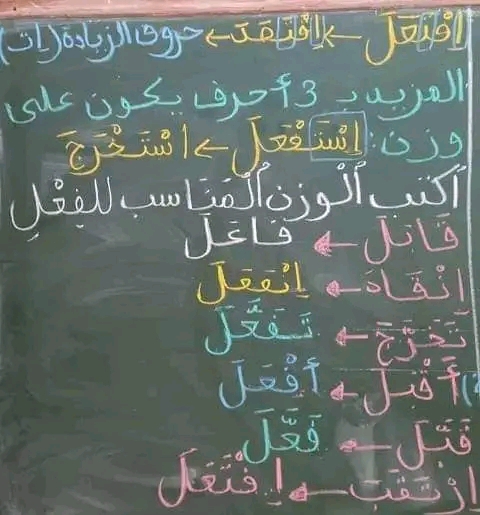 اِفْتَعَلَ ← اِفْتَقَدَ ← حروف الزيادة (ا،ت)
المزيد بـ 3 أحرف يكون على
وزن: اِسْتَفْعَلَ ← اسْتَخْرَجَ
أكتب الْوزن الْمُنَاسب للفِعْلِ
قَاتَلَ ← فَاعَلَ
انْقَادَ ← اِنْفَعَلَ
تَخَرَّجَ ← تَفَعَّلَ
أَقْبَلَ ← أَفْعَلَ
قَبَّلَ ← فَعَّلَ
ارْتَقَبَ ← اِفْتَعَلَ